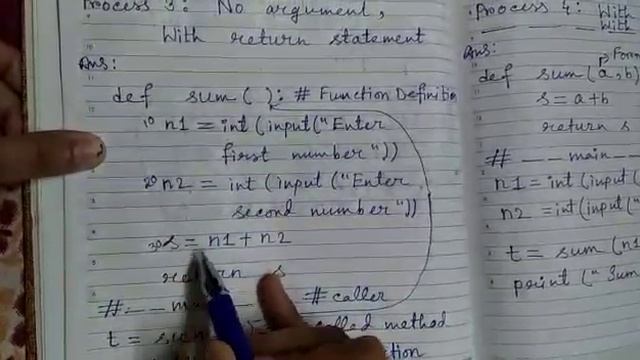 Process 3: No argument,
With return statement
Ans:
def sum( ): # Function Definition
10 n1 = int (input("Enter
first number"))
20 n2 = int (input ("Enter
second number"))
30 s = n1 + n2
s
#-- # caller
t = called method
Process 4: With
With
Ans:
def sum(a,b)
s=a+b
return s
# -- main --
n1 = int(input(
n2 = int(input(
t = sum(n1
print("Sum